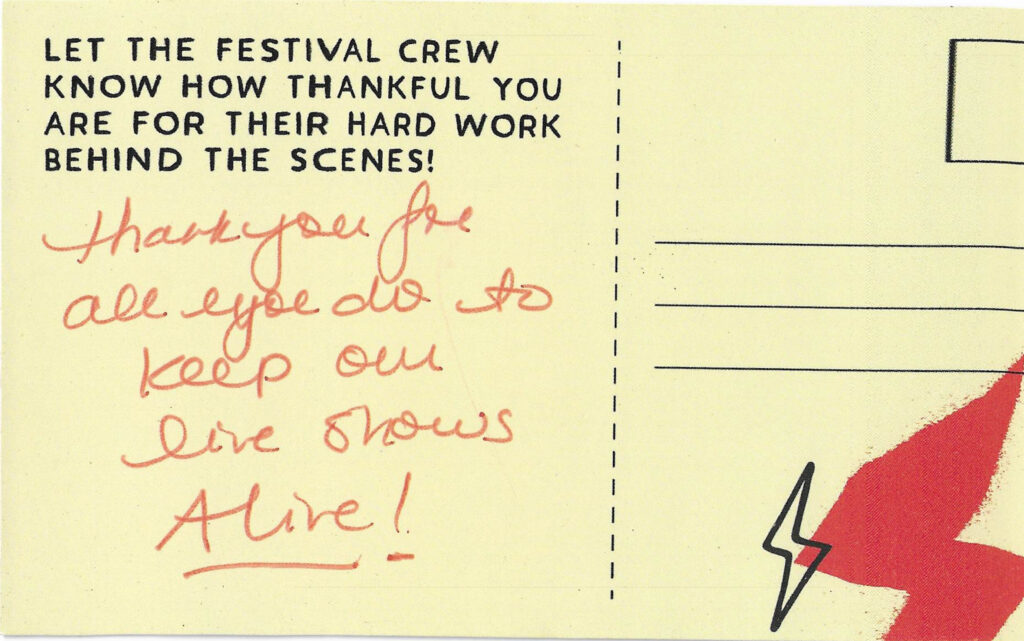 LET THE FESTIVAL CREW
KNOW HOW THANKFUL YOU
ARE FOR THEIR HARD WORK
BEHIND THE SCENES!
thank you for
all you do to
keep our
live shows
Alive!